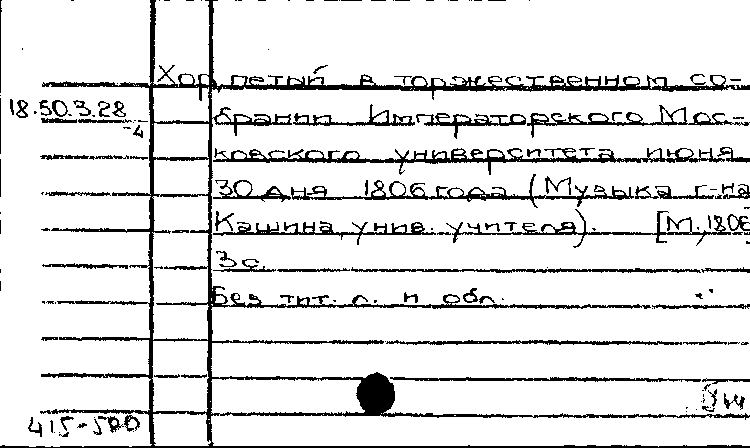 Хор, петый в торжественном со-
18.50.3.28
-4
брании Императорского Мос-
ковского университета июня
30 дня 1806 года (Музыка г-на
Кашина, унив. учителя). [М., 1806]
3 с.
Без тит. л. и обл.
415-500